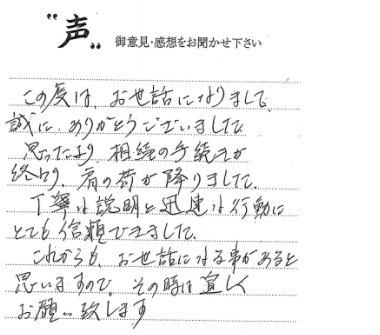 "声" 御意見・感想をお聞かせ下さい
この度は、お世話になりまして、
誠に、ありがとうございました。
思ったより 相続の手続きが
終わり、肩の荷が降りました。
丁寧な説明と迅速な行動に
とても信頼できました。
これからも、お世話になる事があると
思いますので、その時は宜しく
お願い致します